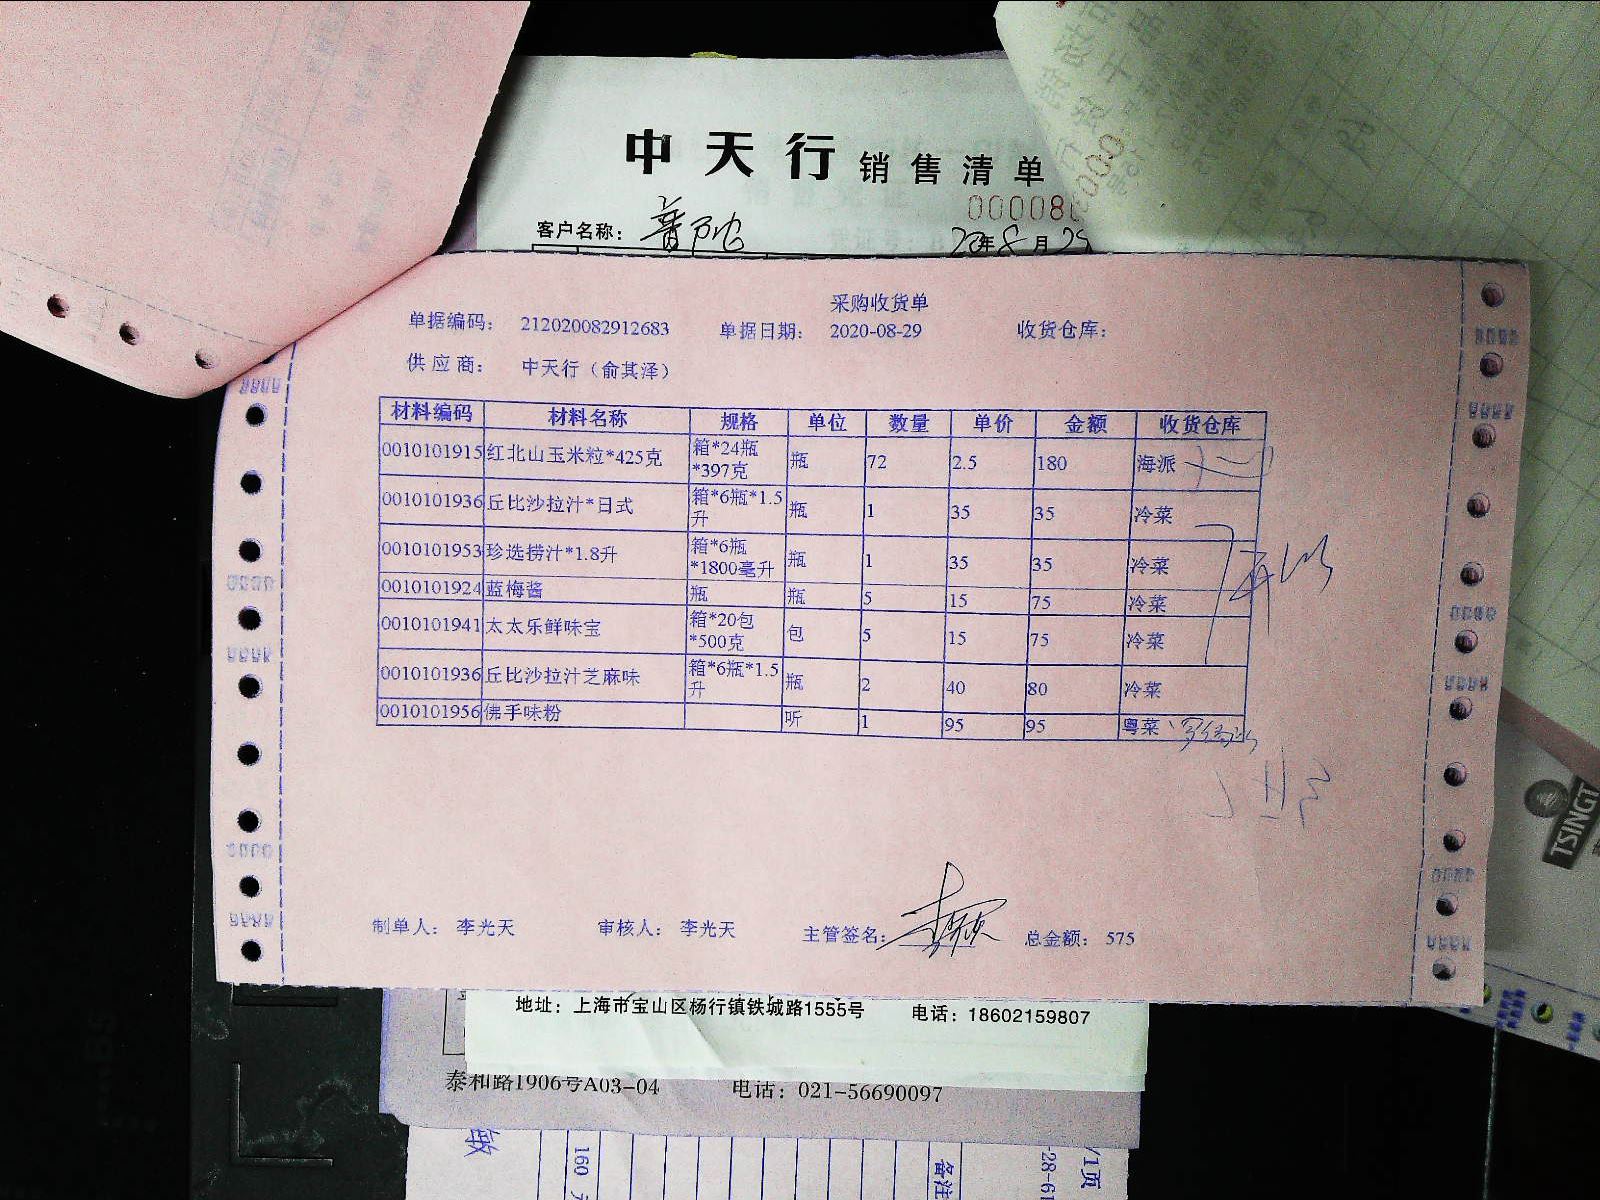 中天行 销售清单
00008
客户名称：普陀
20年8月29
采购收货单
单据编码： 212020082912683 单据日期： 2020-08-29 收货仓库：
供应商： 中天行（俞其泽）
材料编码 材料名称 规格 单位 数量 单价 金额 收货仓库
0010101915 红北山玉米粒*425克 箱*24瓶*397克 瓶 72 2.5 180 海派
0010101936 丘比沙拉汁*日式 箱*6瓶*1.5升 瓶 1 35 35 冷菜
0010101953 珍选捞汁*1.8升 箱*6瓶*1800毫升 瓶 1 35 35 冷菜
0010101924 蓝梅酱 瓶 瓶 5 15 75 冷菜
0010101941 太太乐鲜味宝 箱*20包*500克 包 5 15 75 冷菜
0010101936 丘比沙拉汁芝麻味 箱*6瓶*1.5升 瓶 2 40 80 冷菜
0010101956 佛手味粉 听 1 95 95 粤菜
制单人： 李光天 审核人： 李光天 主管签名： 总金额： 575
地址：上海市宝山区杨行镇铁城路1555号 电话：18602159807
泰和路1906号A03-04 电话：021-56690097
160
备注
/1页
TSINGT